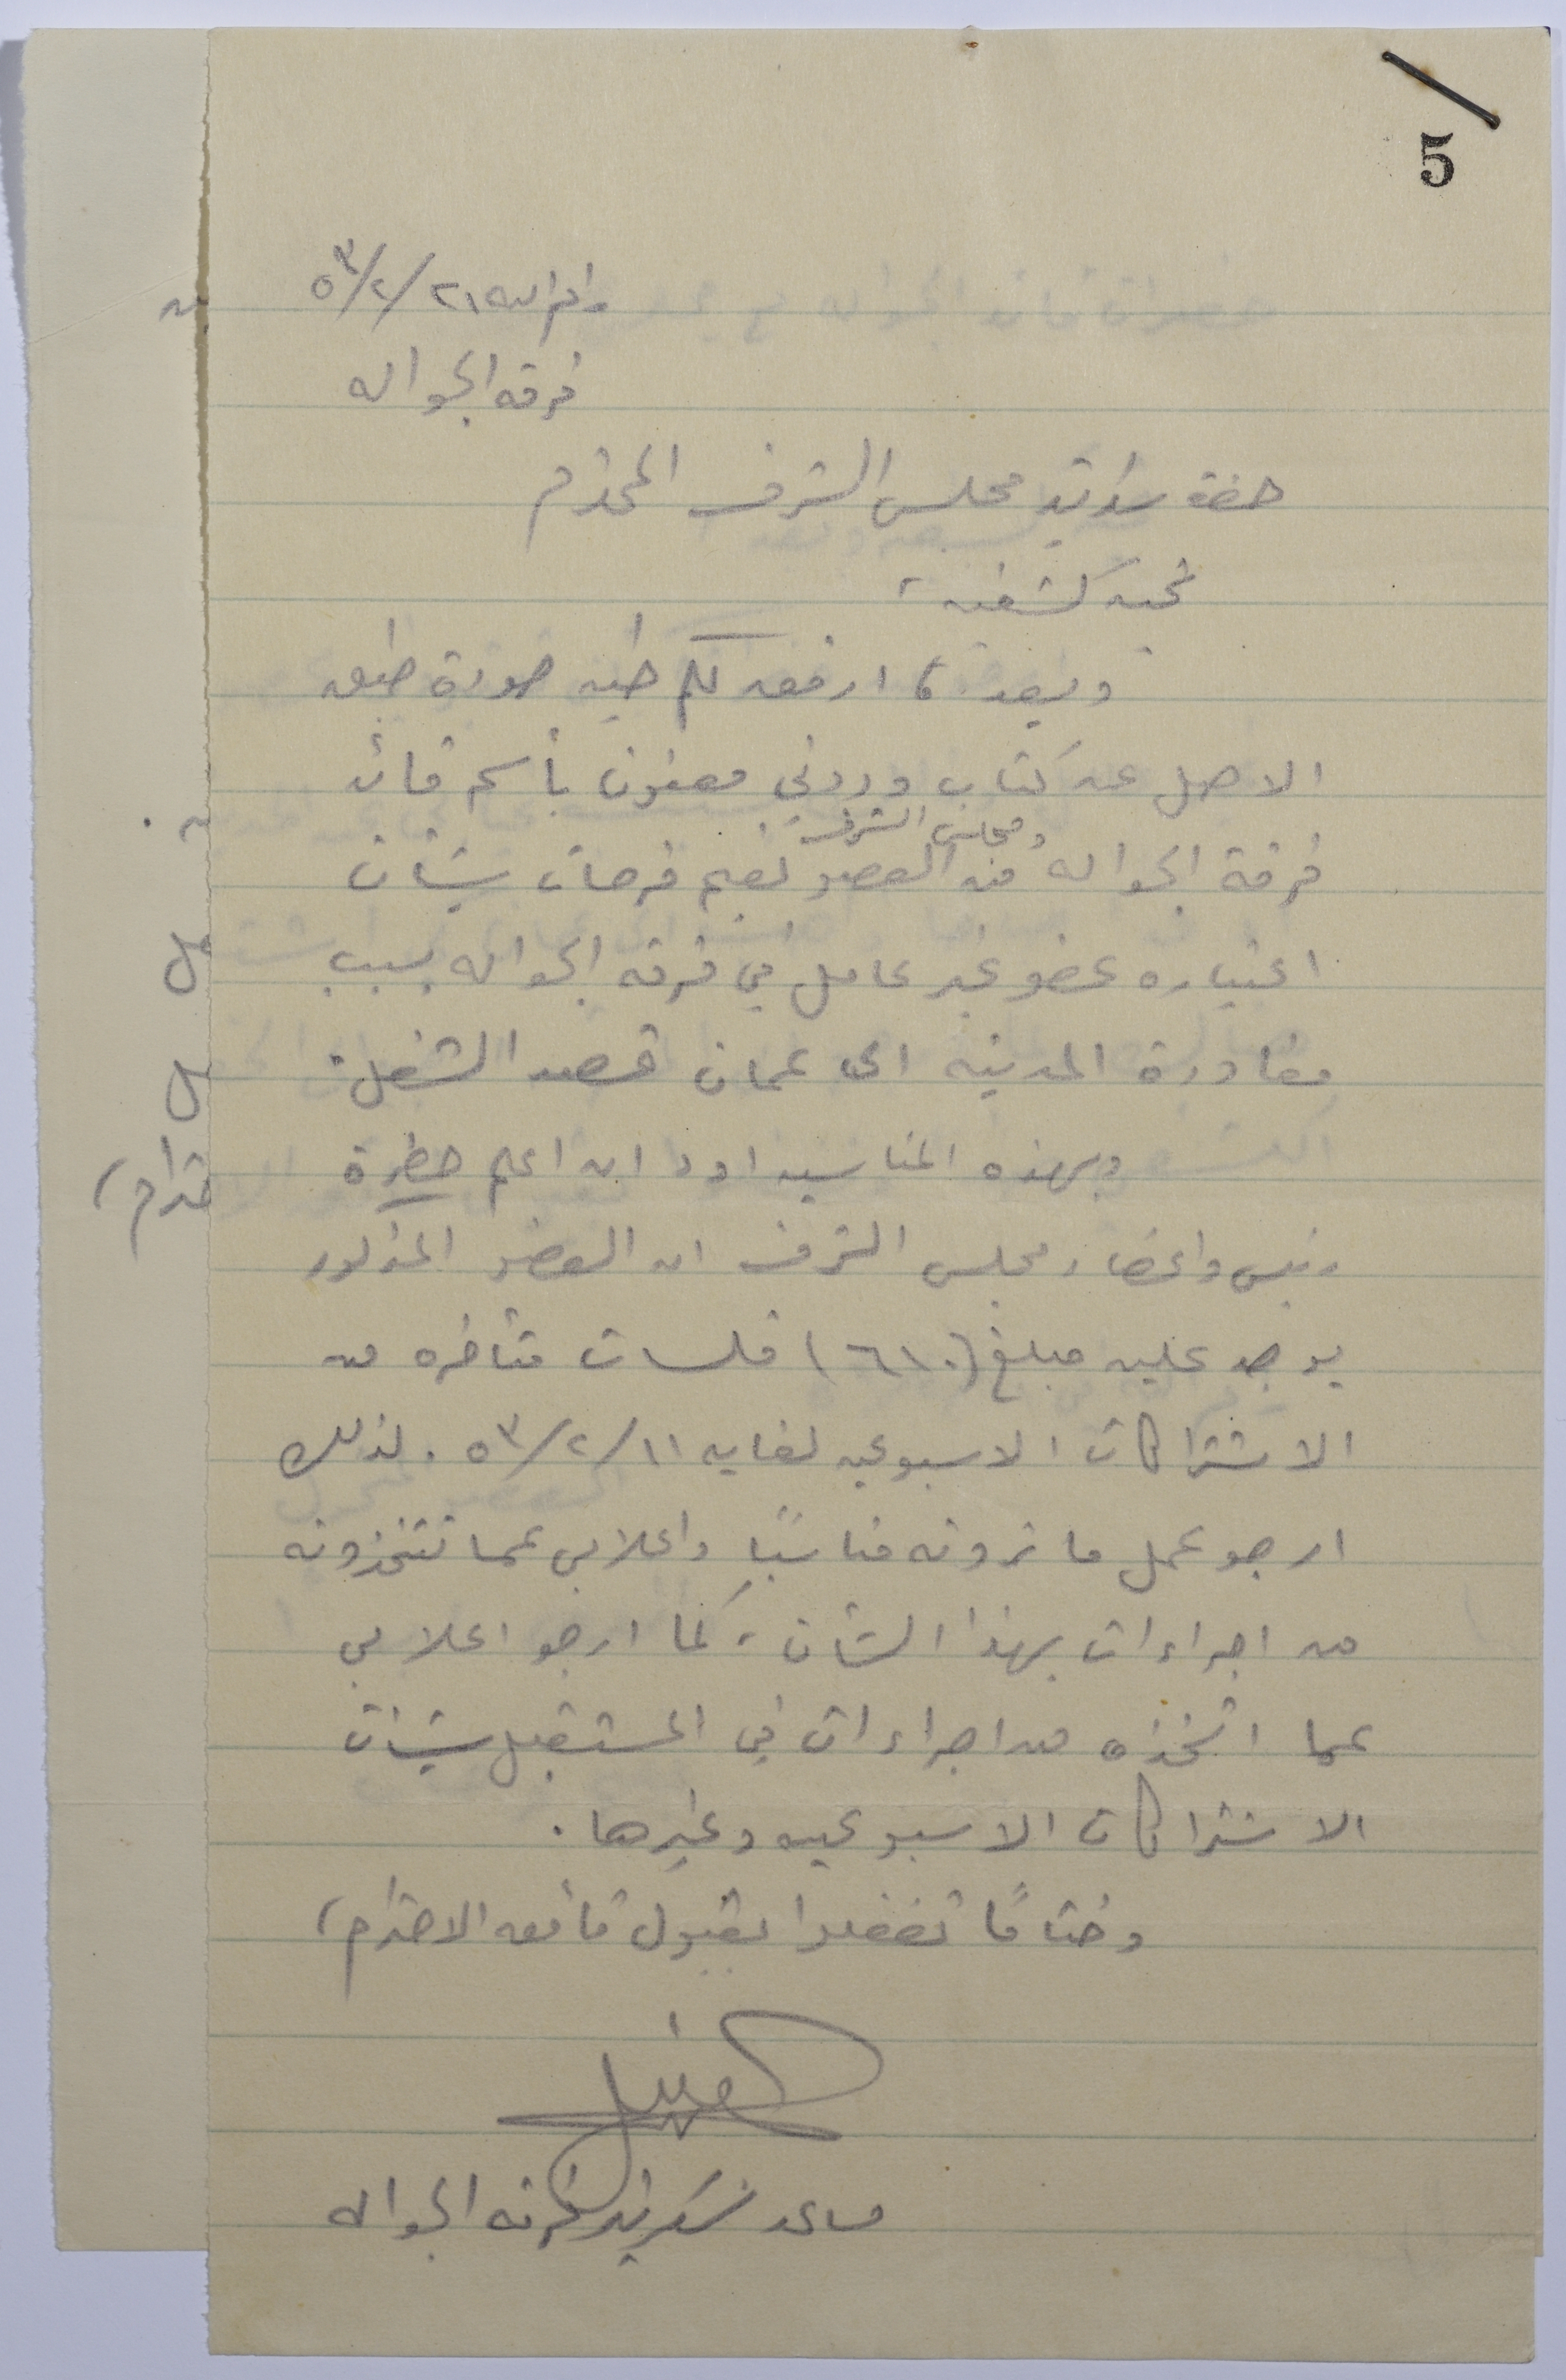 5
رام الله ٢١/٢/٥٣
فرقه الجواله
حضرة سكرتير مجلس الشرف المحترم
تحيه كشفيه ،
وبعد ، ارفعه لكم طيه صورة طبق
الاصل عن كتاب وردني معنون بأسم قائد
ومجلس الشرف
فرقة الجواله من العضو نعيم فرحات بشأن
اعتباره عضو غير عامل في فرقه الجواله بسبب
مغادرة المدينه الى عمان قصد الشغل .
وبهذه المناسبه اود ان اعلم حضرة
رئيس واعضاء مجلس الشرف ان العضو المذكور
يوجد عليه مبلغ (٦١٠) فلسات متأخره من
الاشتراكات الاسبوعيه لغايه ١١/٢/٥٣ . لذلك
ارجو عمل ما ترونه مناسبًا واعلامي عما تتخذونه
من اجراءات بهذا الشأن ، كما ارجو اعلامي
عما اتخذه من اجراءات في المستقبل بشأن
الاشتراكات الاسبوعيه وغيرها .
وختامًا تفضلوا بقبول فائق الاحترام ،
مساعد سكرتير فرقه الجواله